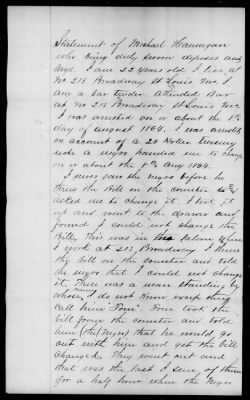 Statement of Michael Hannegan
who being duly sworn deposes and
says. I am 22 years old I live at
No 213 Broadway St Louis Mo. I
am a bar tender attended Bar
at No 213 Broadway St Louis Mo.
I was arrested on or about the 8th
day of august 1864. I was arrested
on account of a 20 dollar Treasury
note a negro handed me to change
on or about the 8th Aug 1864.
I never seen the negro before he
threw the Bill on the counter
asked me to change it. I took it
up and went to the drawer and
found I could not change the
Bill, This was in the saloon where
I work at 213 Broadway. I threw
the bill on the counter and told
the negro that I could not change
it, There was a man standing by
whose I do not know except they
call him "Tom". Tom took the
bill from the counter and told
him (the Negro) that he would go
out with him and get the bill
Changed. They went out and
that was the last I seen of them
for a half hour when the Negro